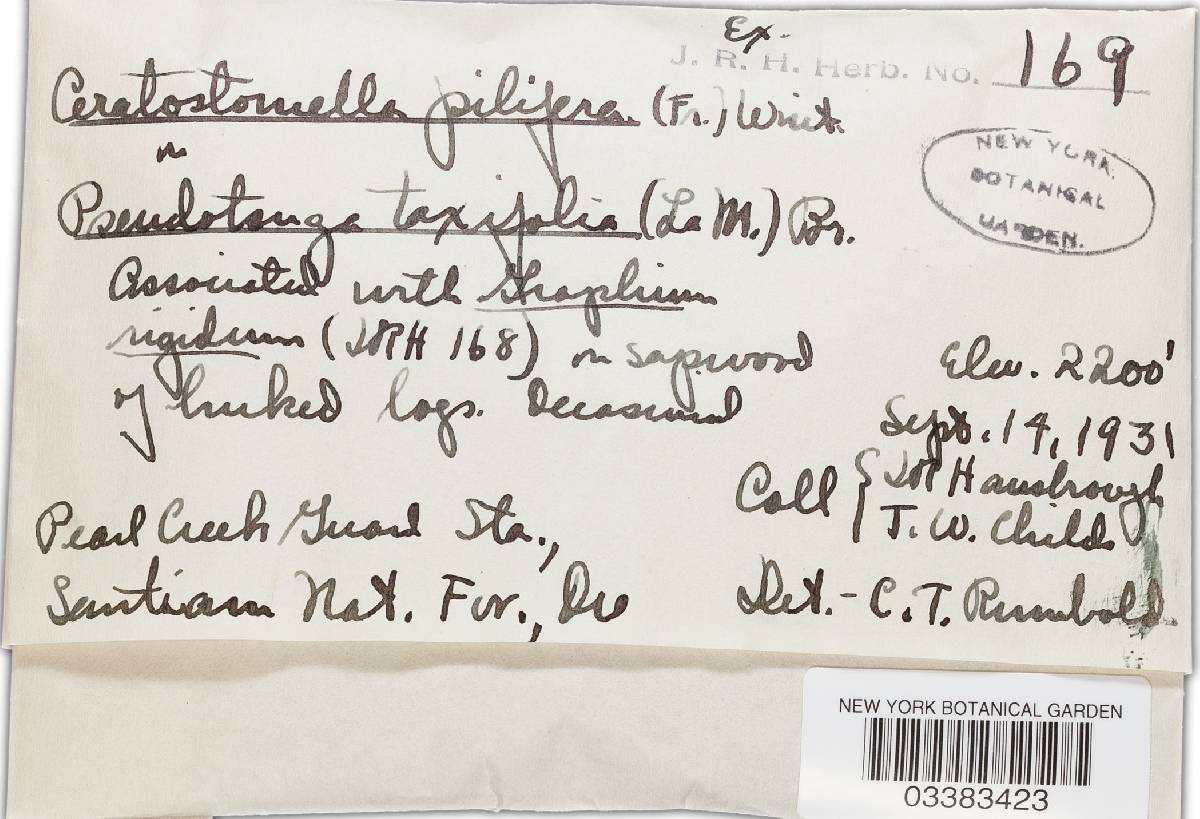 Ex.
J. R. H. Herb. No. 169
Ceratostomella pilifera (Fr.) Wint.
on
Pseudotsuga taxifolia (La M.) Br.
Associated with Graphium
rigidum (JRH 168) on sapwood
of burked logs. Occasional
NEW YORK
BOTANICAL
GARDEN.
Elev. 2200'
Sept. 14, 1931
Coll { JR Hansbrough
T. W. Childs
Pearl Creek Guard Sta.,
Santiam Nat. For., Ore
Det. - C. T. Rumbold
NEW YORK BOTANICAL GARDEN
03383423